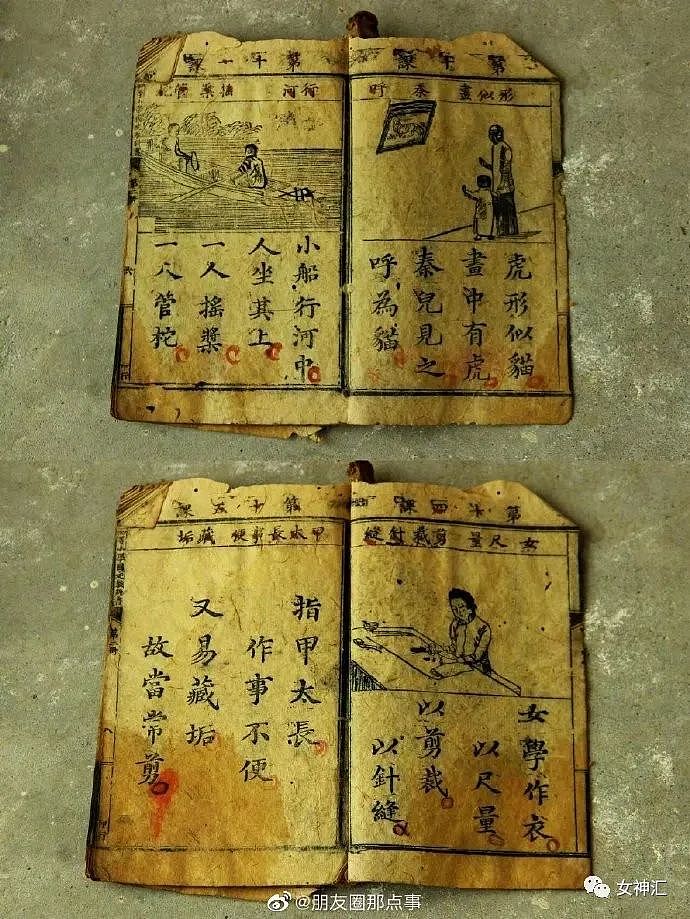 第十課
形似畫 秦 呼
虎形似貓
畫中有虎
秦兒見之
呼為貓
第十一課
行河 搖槳 管
小船行河中
人坐其上
一人搖槳
一人管柁
第十四課
女尺量 剪裁針縫
女學作衣
以尺量
以剪裁
以針縫
第十五課
甲太長剪便 藏垢
指甲太長
作事不便
又易藏垢
故當常剪
@朋友圈那点事
女神汇